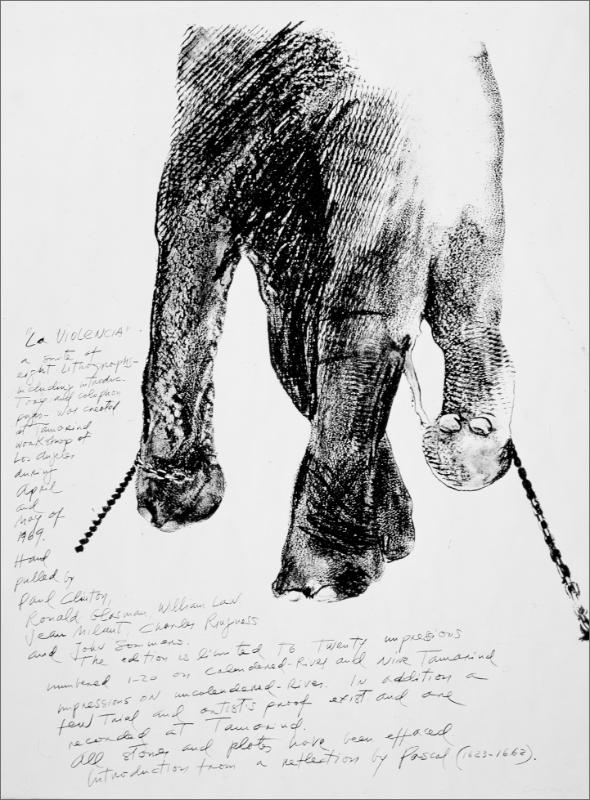 "La VIOLENCIA" -
a suite of
eight Lithographs -
including introduc-
tory and colophon
pages - was created
at Tamarind
workshop of
Los Angeles
during
April
and
May of
1969.
Hand
pulled by
Paul Clinton,
Ronald Glasman, William Law
Jean Milant, Charles Ringness
and John Sommers.
The edition is limited to Twenty impressions
numbered 1-20 on calendered-Rives and Nine Tamarind
impressions on uncalendered-Rives. In addition a
few Trial and artist's proof exist and are
recorded at Tamarind.
All stones and photos have been effaced
Introduction from a reflection by Pascal (1623-1662).